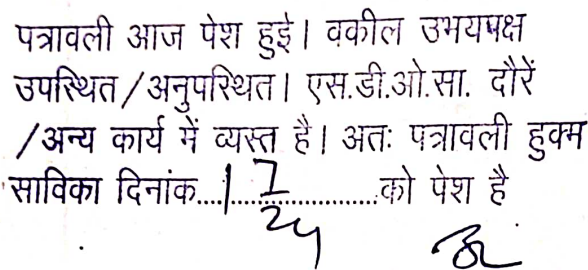 पत्रावली आज पेश हुई। वकील उभयपक्ष
उपस्थित/अनुपस्थित। एस.डी.ओ.सा. दौरें
/अन्य कार्य में व्यस्त है। अतः पत्रावली हुक्म
साविका दिनांक....1/7/24............को पेश है